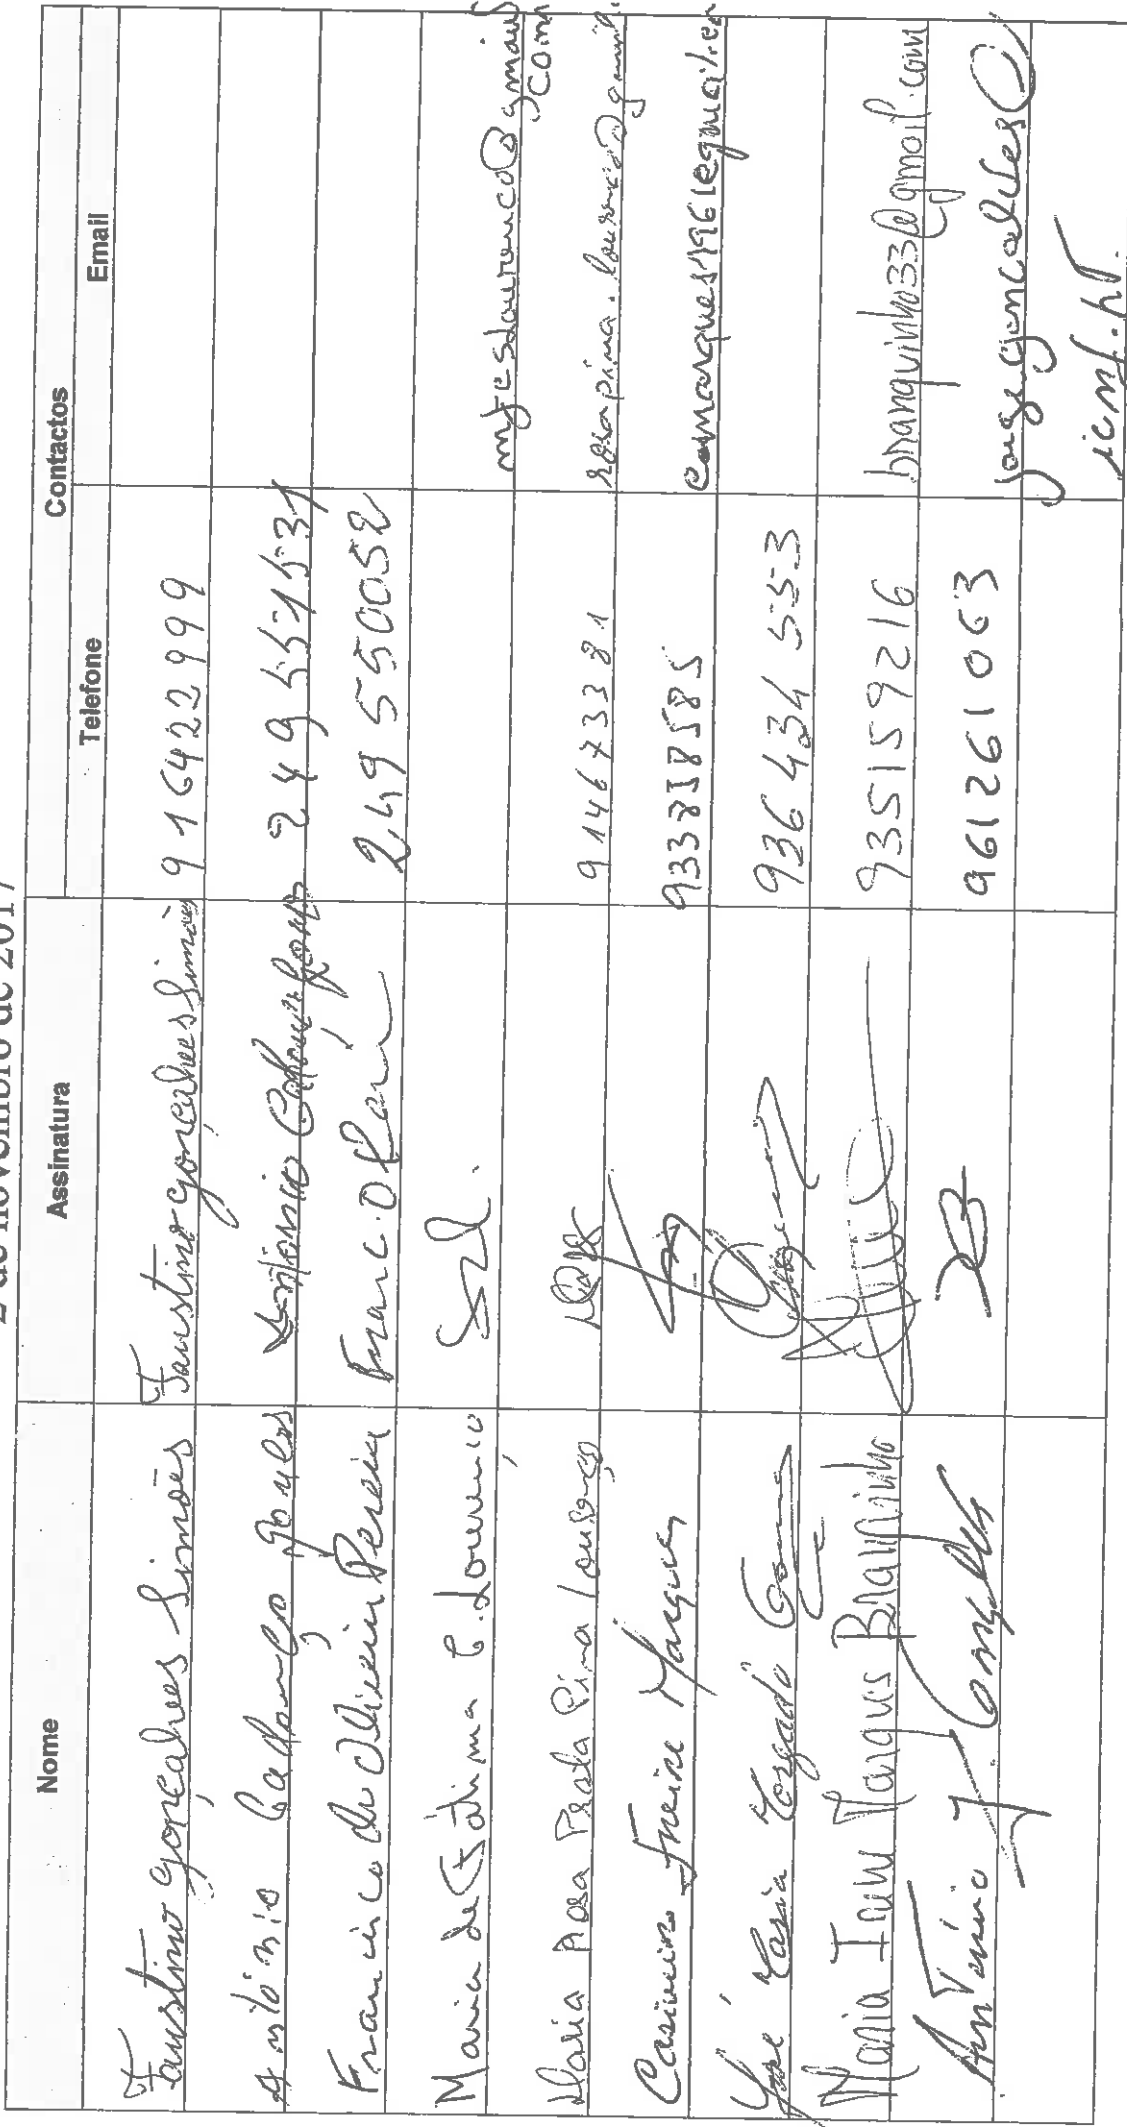 2 de novembro de 2017
Nome Assinatura Contactos
Telefone Email
Faustino Gonçalves Simões Faustino Gonçalves Simões 916422999
António Gomes António 249551531
Francisco de Oliveira Pereira Franc. O 249550052
Maria de Fátima C. Lourenço mfcslourenco@gmail
com
Maria Rosa Prata Pina Lourenço 914673381 rosapina.lourenco@gmail.
Casimiro Freire Marques 933781585 camarques1961@gmail.com
José Maria Morgado 936 434 553
Maria Irene Marques Branquinho 935159216 branquinho33@gmail.com
António J. Gonçalves 961261063 jorge.goncalves@
icnf.pt.